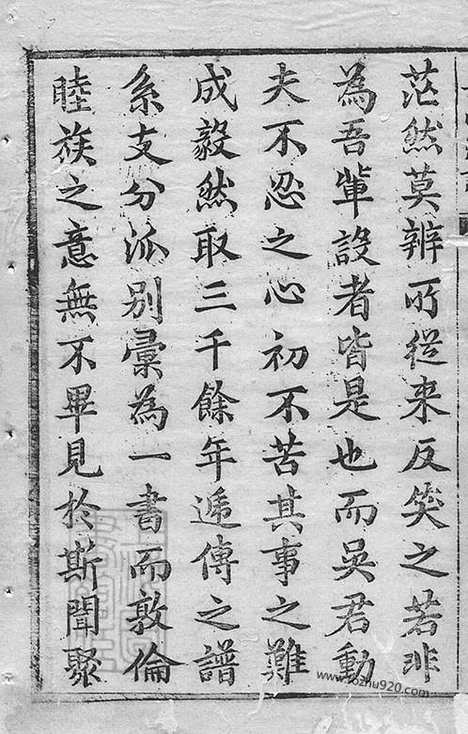 茫然莫辨所從来反笑之若非
為吾軰設者皆是也而吴君動
夫不忍之心初不苦其事之難
成毅然取三千餘年遞傳之譜
系支分派別彙為一書而敦倫
睦族之意無不畢見於斯聞聚
www.fozhu920.com